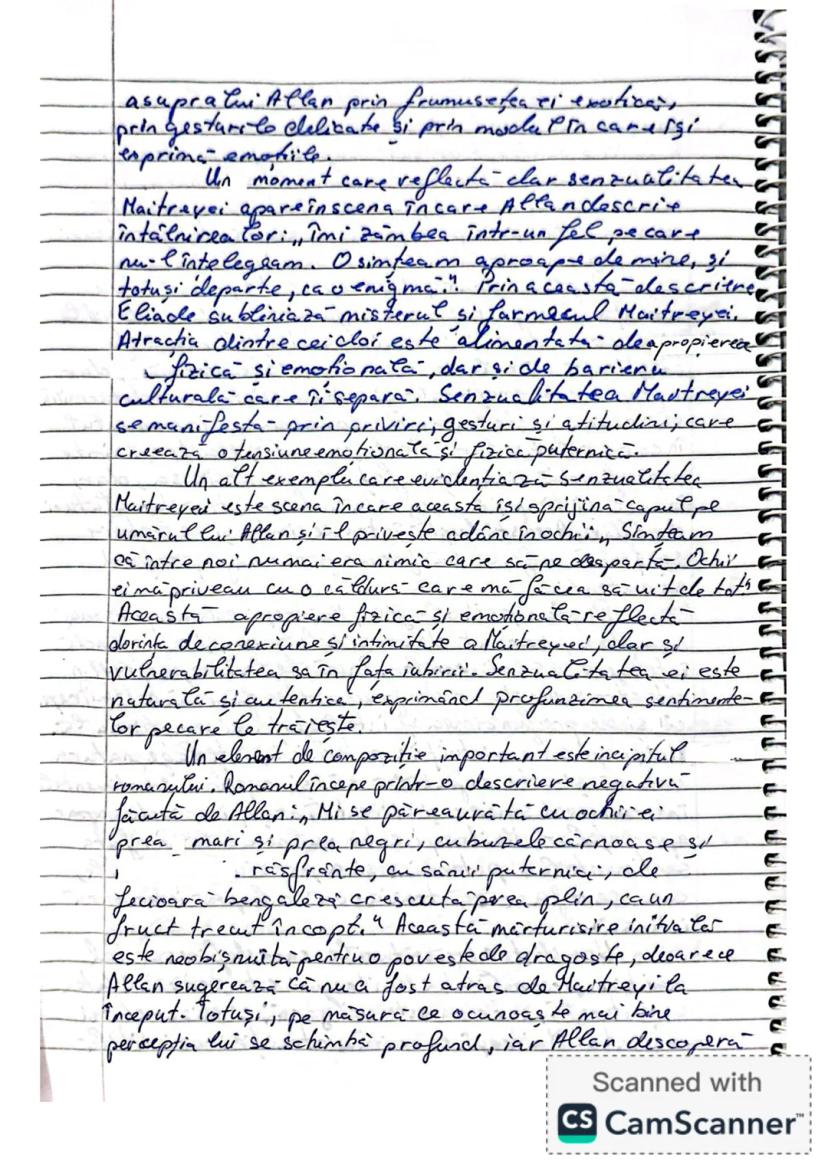 asupra lui Allan prin frumusețea ei exotică,
prin gesturile delicate și prin modul în care își
exprimă emoțiile.
Un moment care reflectă clar senzualitatea
Maitreyei apare în scena în care Allan descrie
întâlnirea lor: „Îmi zâmbea într-un fel pe care
nu-l înțelegeam. O simțeam aproape de mine, și
totuși departe, ca o enigmă." Prin această descriere
Eliade subliniază misterul și farmecul Maitreyei.
Atracția dintre cei doi este alimentată de apropierea
fizică și emoțională, dar și de bariera
culturală care îi separă. Senzualitatea Maitreyei
se manifestă prin priviri, gesturi și atitudini, care
creează o tensiune emoțională și fizică puternică.
Un alt exemplu care evidențiază senzualitatea
Maitreyei este scena în care aceasta își sprijină capul pe
umărul lui Allan și îl privește adânc în ochi: „Simțeam
că între noi nu mai era nimic care să ne despartă. Ochii
ei mă priveau cu o căldură care mă făcea să uit de tot"
Această apropiere fizică și emoțională reflectă
dorința de conexiune și intimitate a Maitreyei, dar și
vulnerabilitatea sa în fața iubirii. Senzualitatea ei este
naturală și autentică, exprimând profunzimea sentimente-
lor pe care le trăiește.
Un element de compoziție important este incipitul
romanului. Romanul începe printr-o descriere negativă
făcută de Allan: „Mi se părea urâtă cu ochii ei
prea mari și prea negri, cu buzele cărnoase și
răsfrânte, cu sânii puternici, de
fecioară bengaleză crescută prea plin, ca un
fruct trecut în copt." Această mărturisire inițială
este neobișnuită pentru o poveste de dragoste, deoarece
Allan sugerează că nu a fost atras de Maitreyi la
început. Totuși, pe măsură ce o cunoaște mai bine
percepția lui se schimbă profund, iar Allan descoperă
Scanned with
CS CamScanner™